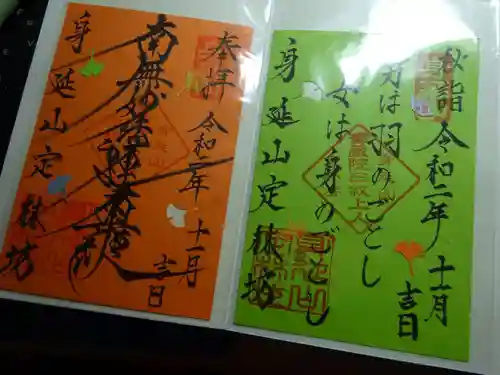 秋詣 令和二年 十一月
吉日
男は羽のごとし
女は身のごとし
身延山定林坊
奉拝 令和二年 十一月
吉日
南無妙法蓮華経
身延山定林坊